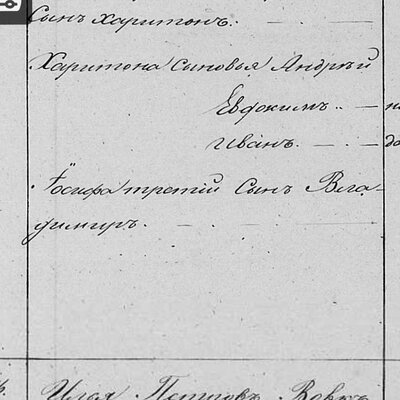 Сынъ Харитонъ.
Харитона сыновья Андрей
Евдокимъ.
Иванъ.
Іосифа третій Сынъ Вла-
димиръ.
Илья Петровъ